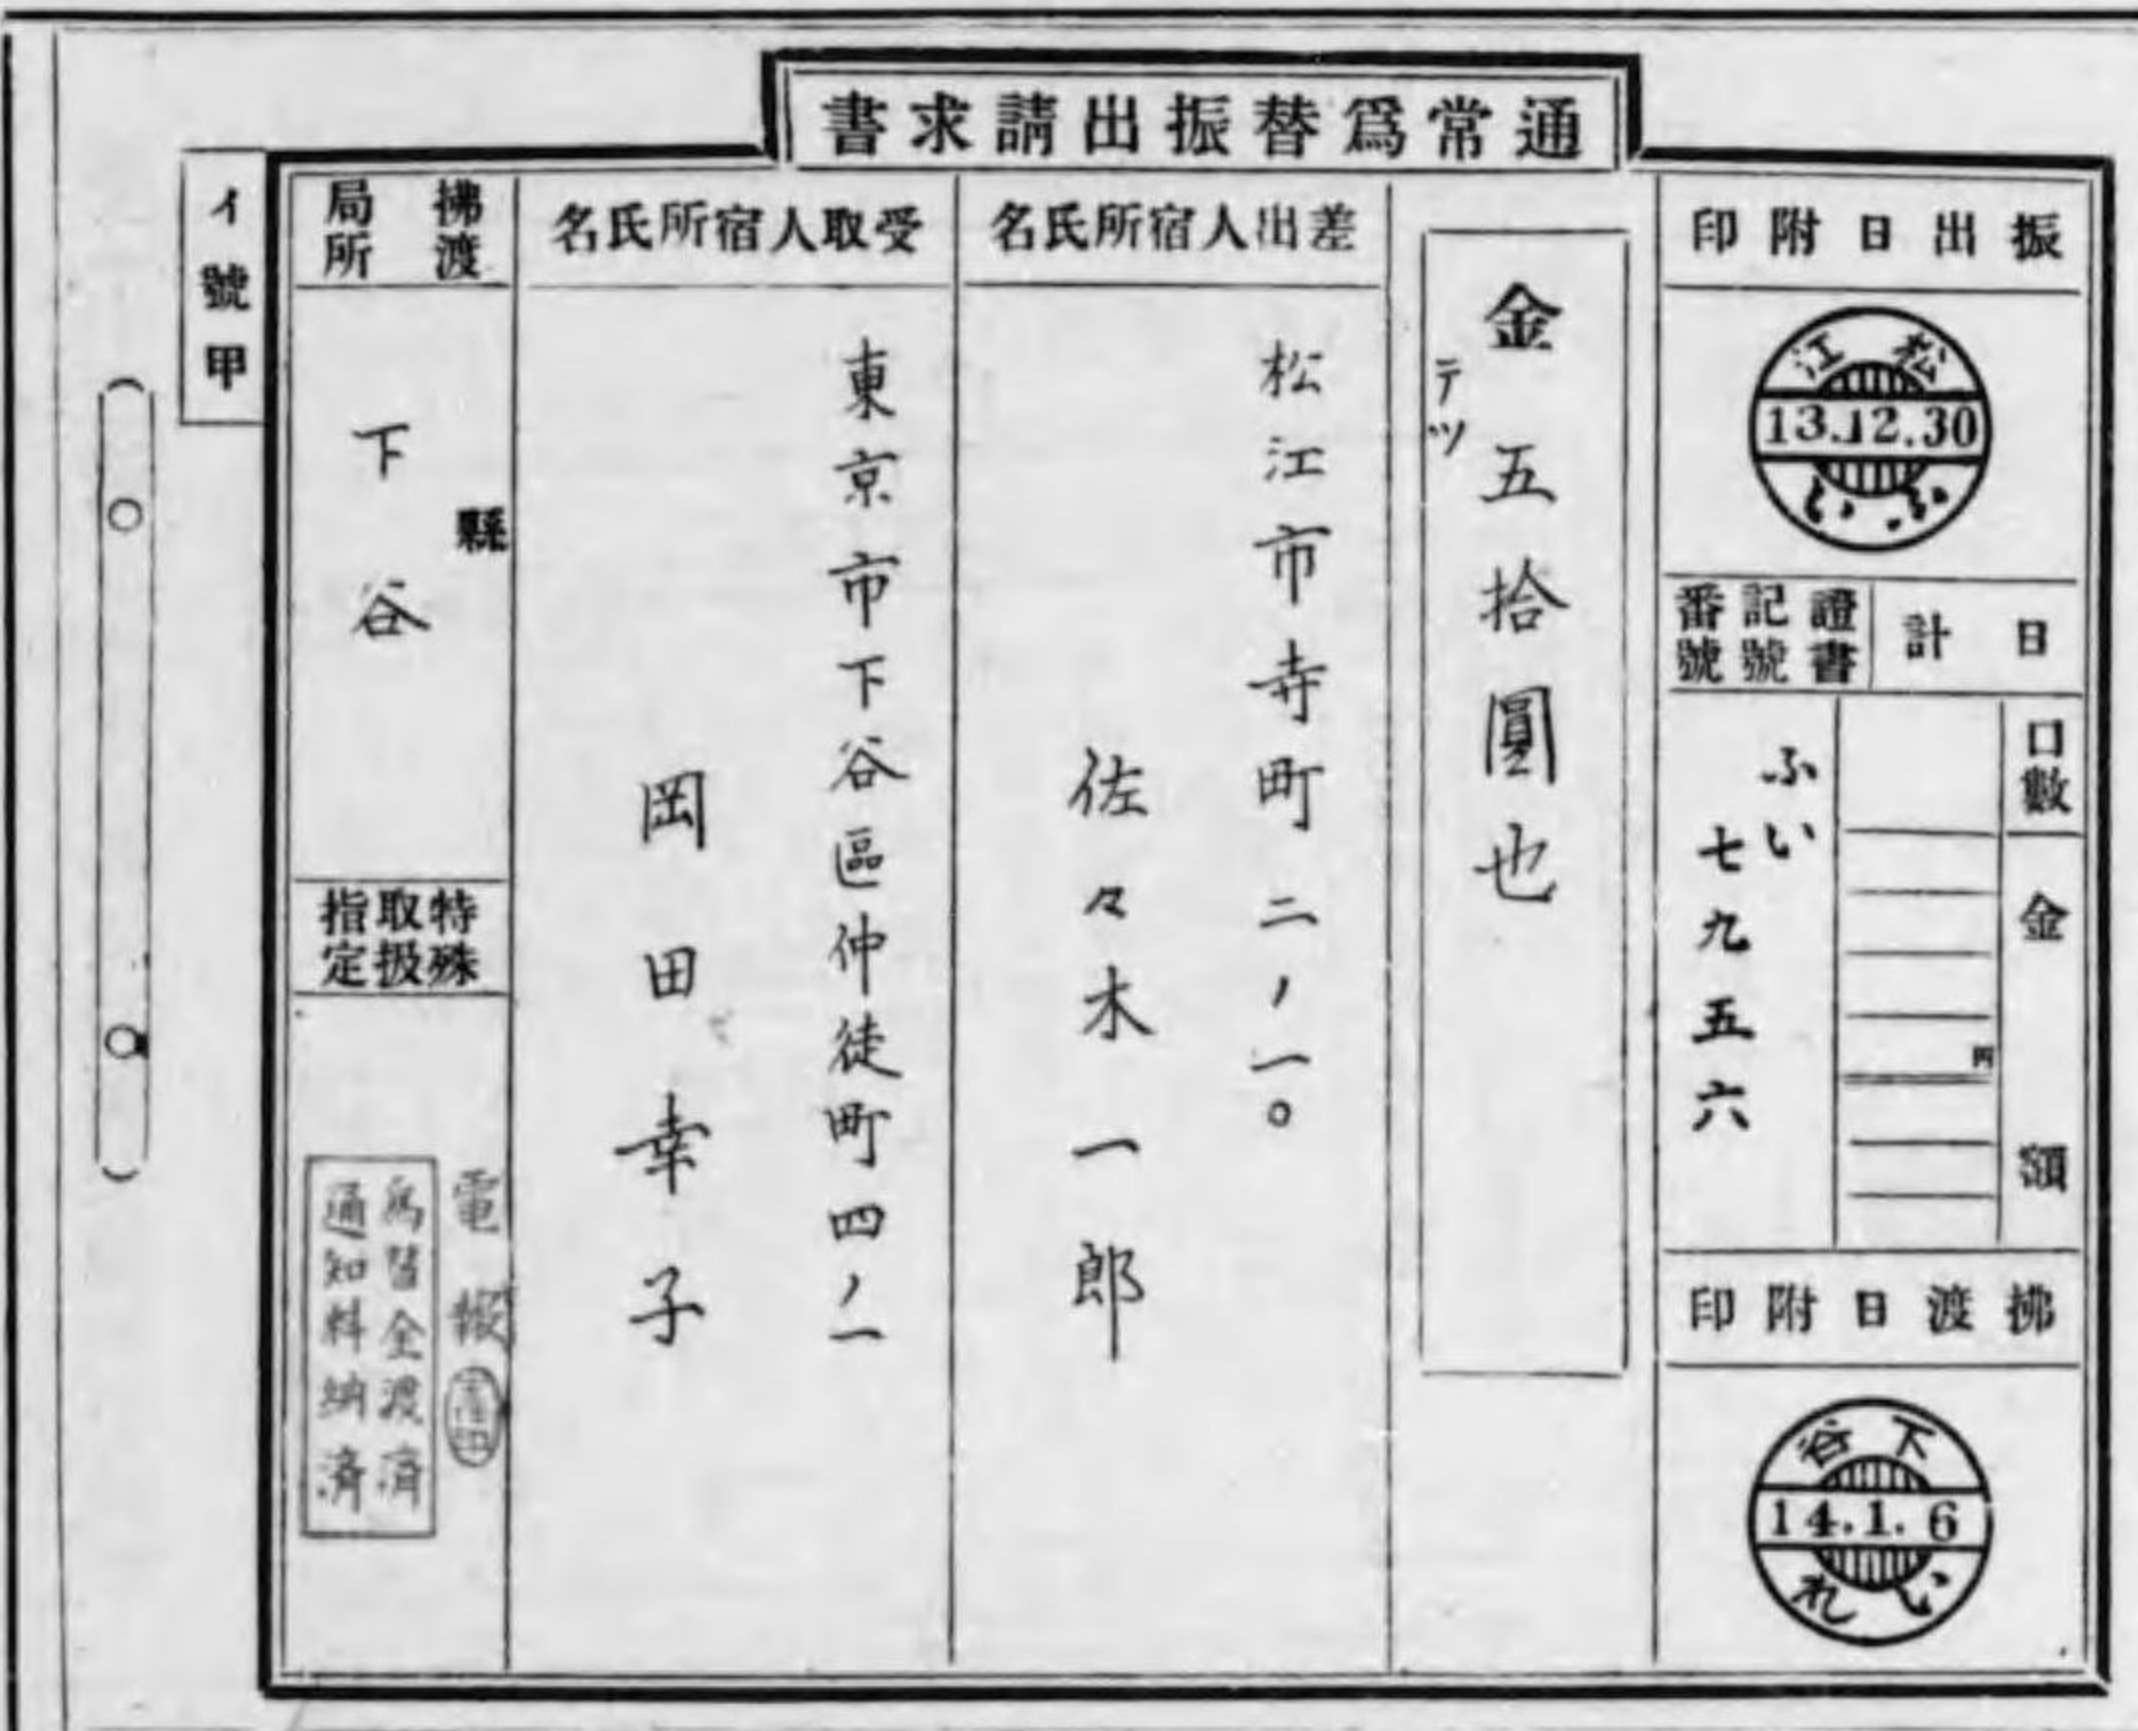 通常爲替振出請求書
振出日附印
松江
13.12.30
い.い.い
日計
口數
金額
円
證書
記號
番號
ふい
七九五六
拂渡日附印
下谷
14.1.6
いれ
金五拾圓也
テツ
差出人宿所氏名
松江市寺町二ノ一〇
佐々木一郎
受取人宿所氏名
東京市下谷區仲徒町四ノ一
岡田幸子
拂渡
局所
縣
下谷
特殊
取扱
指定
電報
爲替金渡濟
通知料納済
イ號甲